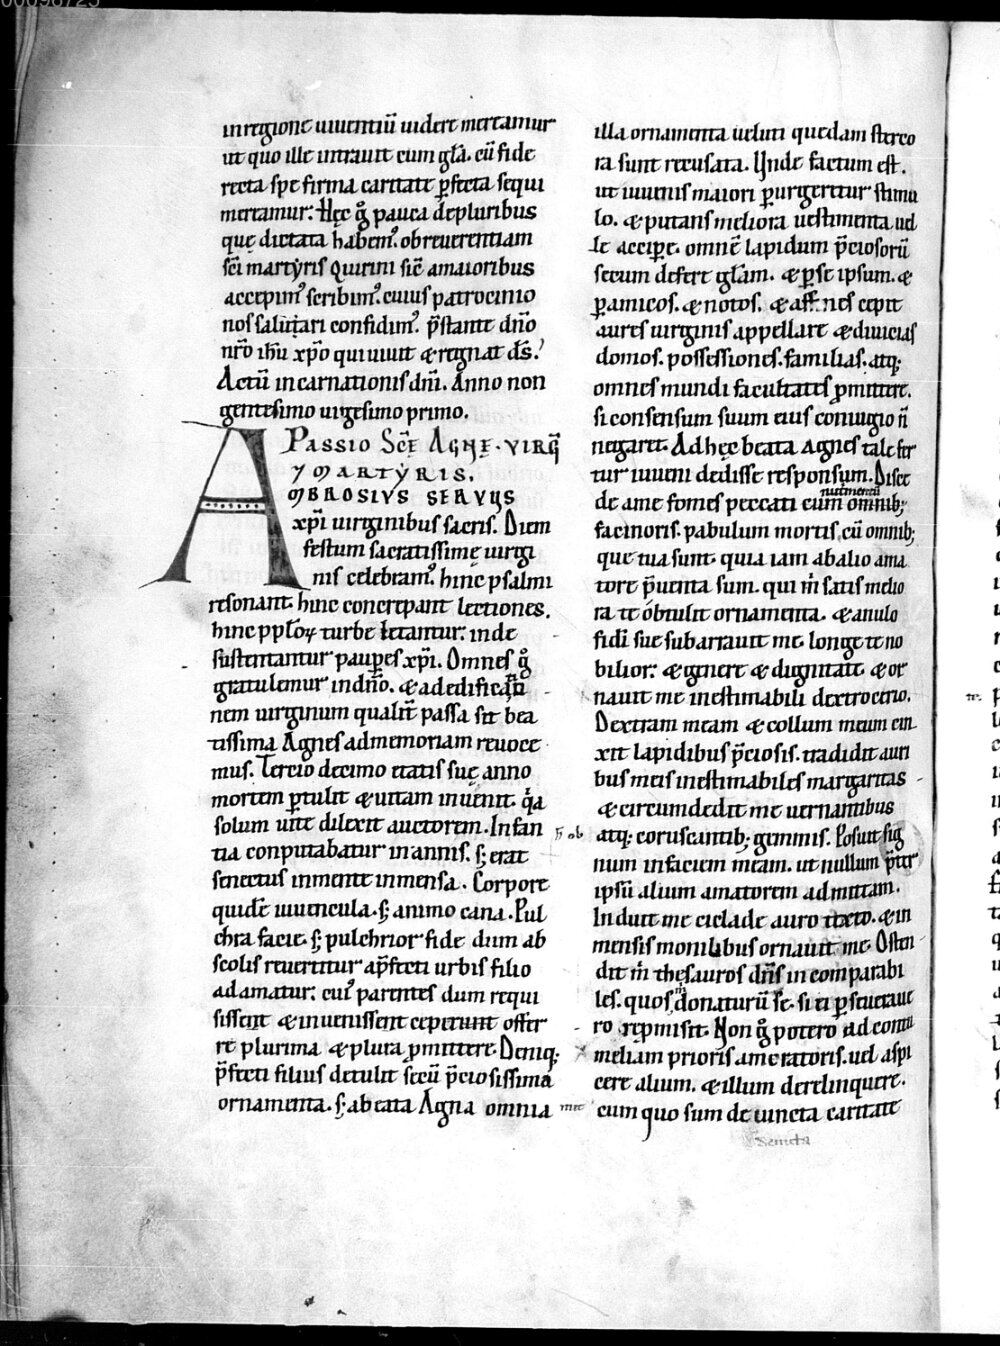 00098725
in regione uiuentiũ uidere mereamur
ut quo ille intrauit cum gl̃a. cũ fide
recta spe firma caritate ꝑfecta sequi
mereamur: Hęc g̊ pauca de pluribus
quę dictata habem᷒. ob reuerentiam
sc̃i martẏris Quirini sic̃ a maioribus
accepim᷒ scribim᷒. cuius patrocinio
nos saluari confidim᷒. p̃stante dn̄o
nr̄o ihũ xp̄o qui uiuit & regnat ds̄.
Actũ incarnationis dn̄i. Anno non
gentesimo uigesimo primo.
PASSIO SC̄Ę AGNĘ. VIRḠ
7 MARTẎRIS.
AMBROSIVS SERVUS
xp̄i uirginibus sacris. Diem
festum sacratissimę uirgi
nis celebram᷒. hinc psalmi
resonant. hinc concrepant lectiones.
hinc ppl̃oꝝ turbę lętantur. inde
sustentantur pauꝑes xp̄i. Omnes g̊
gratulemur in dn̄o. & ad edificatio
nem uirginum qualit̃ passa sit bea
tissima Agnes ad memoriam reuoce
mus. Tercio decimo etatis suę anno
mortem ꝑtulit & uitam inuenit. q̃a
solum uite dilexit auctorem. Infan
tia conputabatur in annis. s; erat
senectus in mente inmensa. Corpore
quidẽ iuuencula. s; animo cana. Pul
chra facie. s; pulchrior fide dum ab
scolis reuertitur a p̃fecti urbis filio
adamatur. cui᷒ parentes dum requi
sissent & inuenissent ceperunt offer
re plurima & plura ꝓmittere. Deniq;
p̃fecti filius detulit secũ p̃ciosissima
ornamenta. s; a beata Agna omnia
illa ornamenta ueluti quedam sterco
ra sunt recusata. Unde factum est.
ut iuuenis maiori ꝑurgeretur stimu
lo. & putans meliora uestimenta uel
le acciꝑe. omnẽ lapidum p̃ciosorũ
secum defert gl̃am. & ꝑ se ipsum. &
ꝑ amicos. & notos. & affines cepit
aures uirginis appellare & diuicias
domos. possessiones. familias. atq;
omnes mundi facultates ꝓmittere.
si consensum suum eius coniugio ñ
negaret. Ad hęc beata Agnes tale fer
tur iuueni dedisse responsum. Disce
nutrimentũ
de a me fomes peccati cum omnib;
facinoris. pabulum mortis. cũ omnib;
que tua sunt. quia iam ab alio ama
tore p̃uenta sum. qui m̃ satis melio
ra te obtulit ornamenta. & anulo
fidei sue subarrauit me. longe te no
bilior. & genere & dignitate. & or
nauit me inestimabili dextrocerio.
Dextram meam & collum meum cin
xit lapidibus p̃ciosis. tradidit auri
bus meis inestimabiles margaritas
& circumdedit me uernantibus
atq; coruscantib; gemmis. Posuit sig
num in faciem meam. ut nullum p̃ter
ipsũ alium amatorem admittam.
Induit me ciclade auro texto. & in
mensis monilibus ornauit me. Osten
dit m̃ thęsauros dn̄s incomparabi
les. quos m̃ donaturũ se. si ei ꝑseueraue
ro. repmisit. Non g̊ potero ad contu
meliam prioris ameratoris. uel aspi
cere alium. & illum derelinquere.
cum quo sum deuincta caritate